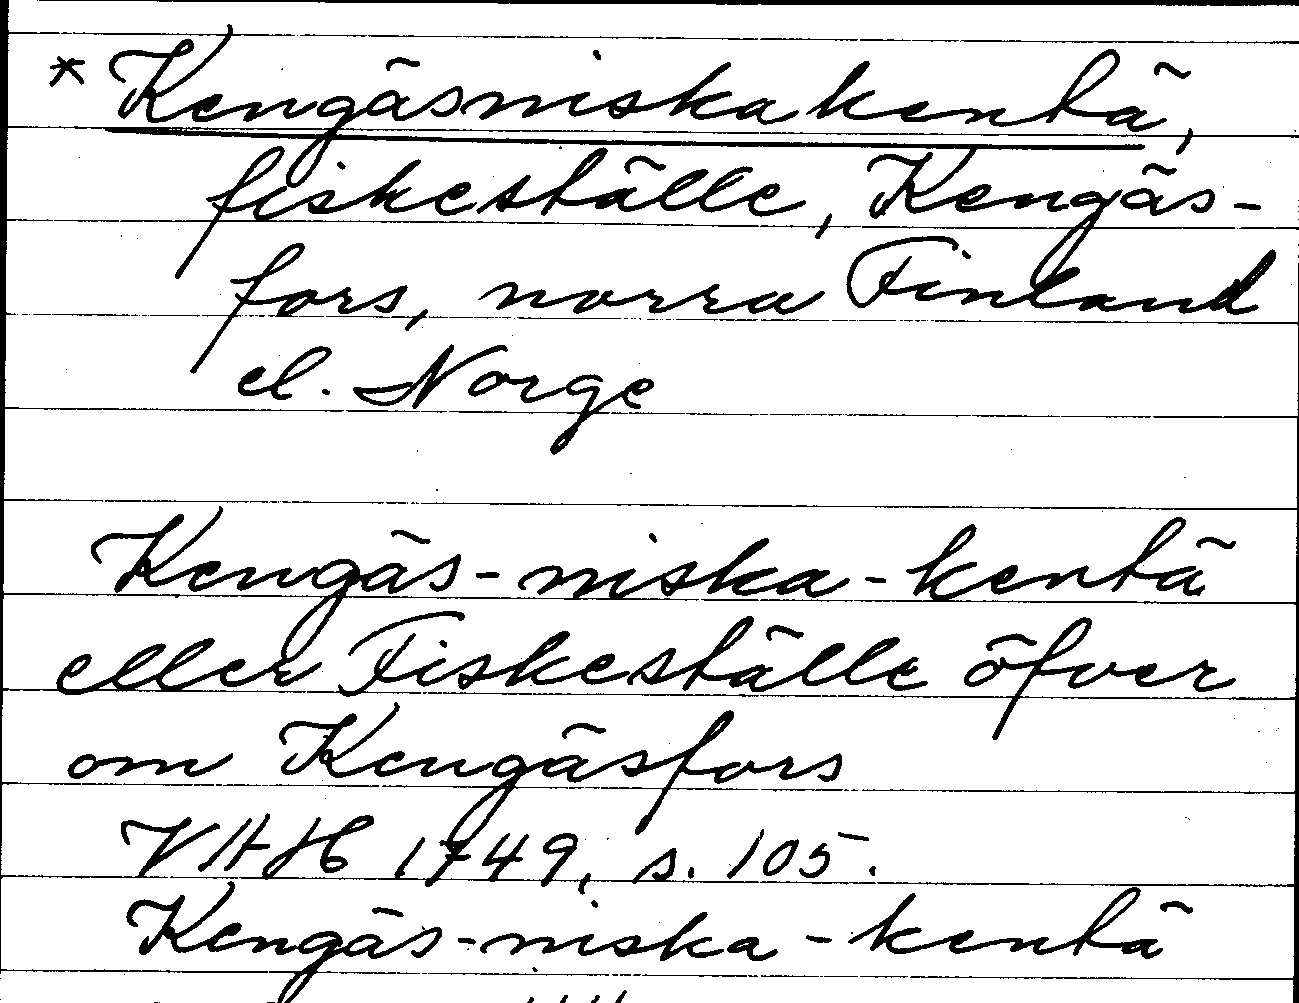 * Kengäsniskakentä,
fiskeställe, Kengäs-
fors, norra Finland
el. Norge
Kengäs-niska-kentä
eller Fiskeställe öfver
om Kengäsfors
VHH 1749, s. 105.
Kengäs-niska-kentä